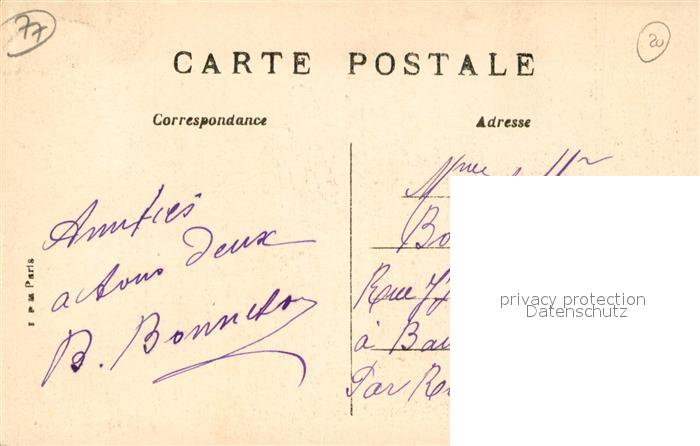 77
20
CARTE POSTALE
Correspondance
Adresse
Amitiés
a tous deux
B. Bonneton
Mme Mr
Bo
Rue
à Bau
Par Ro
Paris
privacy protection
Datenschutz